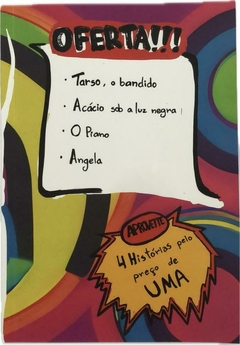 OFERTA!!!
• Tarso, o bandido
• Acácio sob a luz negra
• O Plano
• Angela
APROVEITE
4 Histórias pelo
preço de
UMA